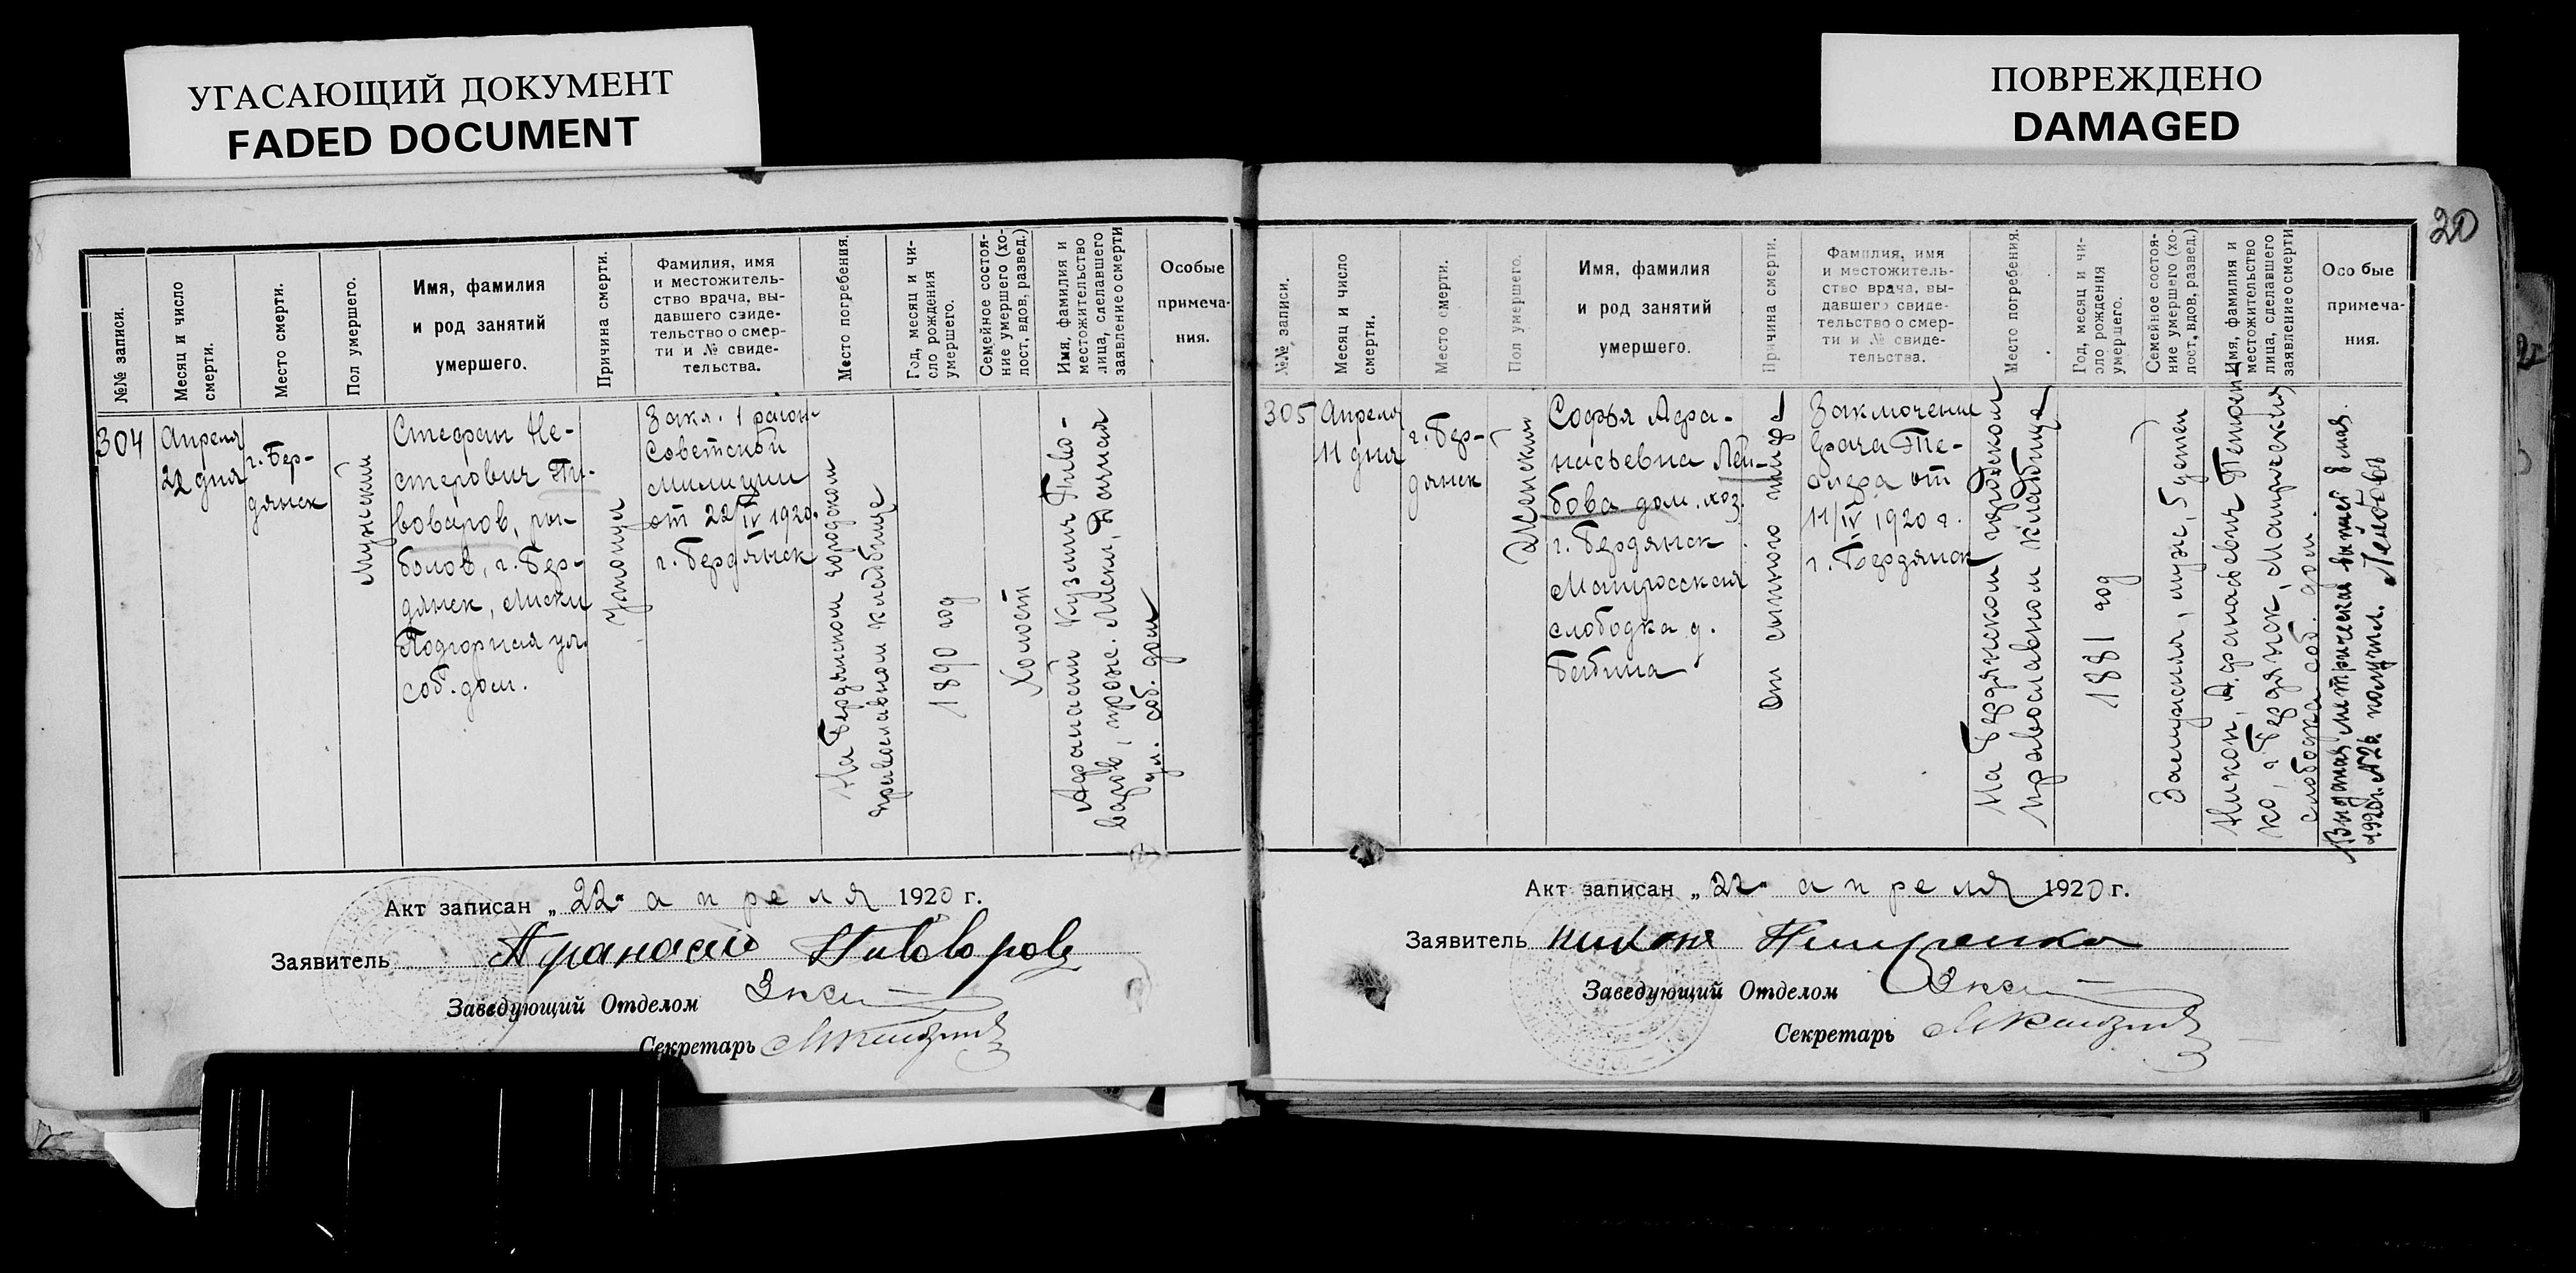 УГАСАЮЩИЙ ДОКУМЕНТ
FADED DOCUMENT
ПОВРЕЖДЕНО
DAMAGED
20
№№ записи.
Месяц и число
смерти.
Место смерти.
Пол умершего.
Имя, фамилия
и род занятий
умершего.
Причина смерти.
Фамилия, имя
и местожитель-
ство врача, вы-
давшего свиде-
тельство о смер-
ти и № свиде-
тельства.
Место погребения.
Год, месяц и чи-
сло рождения
умершего.
Семейное состоя-
ние умершего (хо-
лост, вдов, развед.)
Имя, фамилия и
местожительство
лица, сделавшего
заявление о смерти
Особые
примеча-
ния.
304
Апреля
22 дня
г. Бер-
дянск
Мужской
Стефан Не-
стерович Пи-
воваров, ры-
болов, г. Бер-
дянск, Лиски
Подгорная ул.
соб. дом.
Утонул
Закл. 1 район.
Советской
милиции
от 22/IV 1920.
г. Бердянск
На Бердянском городском
православном кладбище
1890 год
Холост
Афанасий Кузьмич Пиво-
варов, прож. Лиски,
ул. соб. дом
Акт записан „22" апреля 1920 г.
Заявитель Афанасий Пивоваровъ
Заведующий Отделом
Секретарь
№№ записи.
Месяц и число
смерти.
Место смерти.
Пол умершего.
Имя, фамилия
и род занятий
умершего.
Причина смерти.
Фамилия, имя
и местожитель-
ство врача, вы-
давшего свиде-
тельство о смер-
ти и № свиде-
тельства.
Место погребения.
Год, месяц и чи-
сло рождения
умершего.
Семейное состоя-
ние умершего (хо-
лост, вдов, развед.)
Имя, фамилия и
местожительство
лица, сделавшего
заявление о смерти
Особые
примеча-
ния.
305
Апреля
11 дня
г. Бер-
дянск
Женский
Софья Афа-
насьевна Лей-
бова дом. хоз.
г. Бердянск
Матросская
слободка д.
Бабина
От сыпного тифа
Заключение
врача
от
11/IV 1920 г.
г. Бердянск
На Бердянском городском
православном кладбище
1881 год
Замужняя, муж, 5 детей
Никон Афанасьевич Петрен-
ко, г. Бердянск, Матросская
слободка соб. дом.
Выданная метрическая выпись 8 мая
1920 г. № 26 получил.
Акт записан „22" апреля 1920 г.
Заявитель Никонъ
Заведующий Отделом
Секретарь